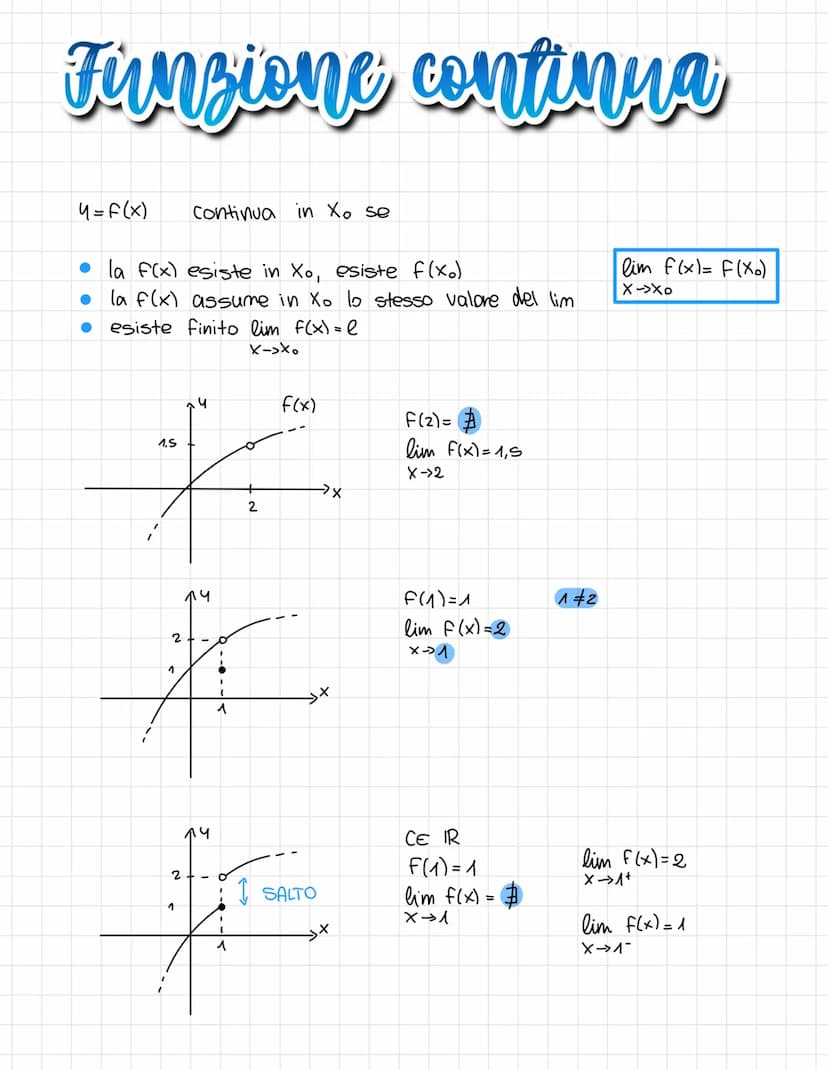 Funzione continua
y=f(x) continua in x₀ se
• la f(x) esiste in x₀, esiste f(x₀)
• la f(x) assume in x₀ lo stesso valore del lim
• esiste finito lim f(x)=l
x→x₀
lim f(x)= f(x₀)
x→x₀
y
f(x)
1.5
2
x
f(2)= ∄
lim f(x)=1,5
x→2
y
2
1
1
x
f(1)=1
1≠2
lim f(x)=2
x→1
y
2
1
SALTO
1
x
CE ℝ
f(1)=1
lim f(x) = ∄
x→1
lim f(x)=2
x→1⁺
lim f(x)=1
x→1⁻